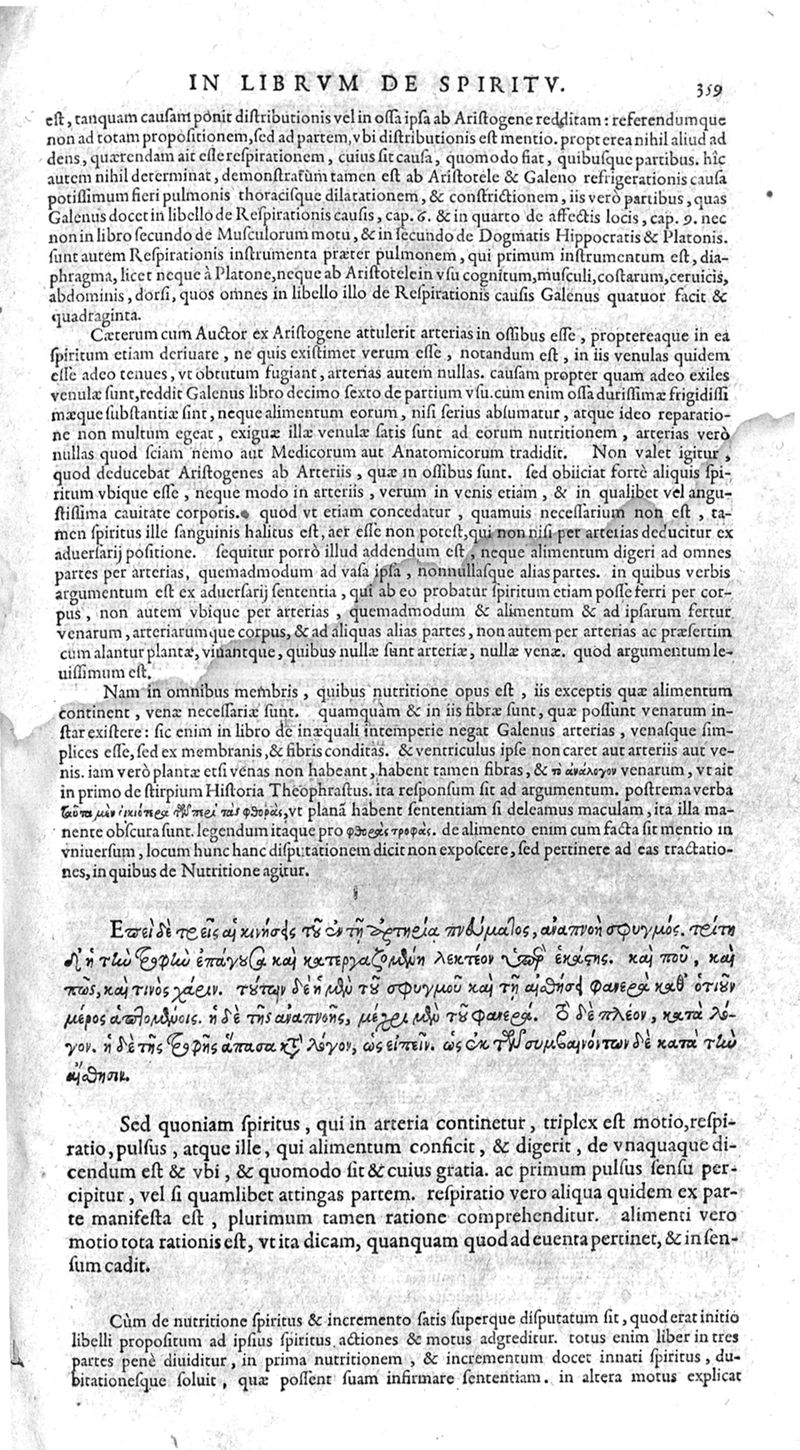 IN LIBRVM DE SPIRITV. 359
eſt, tanquam cauſam ponit diſtributionis vel in oſſa ipſa ab Ariſtogene redditam: referendumque
non ad totam propoſitionem, ſed ad partem, vbi diſtributionis eſt mentio. propterea nihil aliud ad
dens, quærendam ait eſſe reſpirationem, cuius ſit cauſa, quomodo fiat, quibuſque partibus. hîc
autem nihil determinat, demonſtratum tamen eſt ab Ariſtotele & Galeno refrigerationis cauſa
potiſſimum fieri pulmonis thoraciſque dilatationem, & conſtrictionem, iis verò partibus, quas
Galenus docet in libello de Reſpirationis cauſis, cap. 6. & in quarto de affectis locis, cap. 9. nec
non in libro ſecundo de Muſculorum motu, & in ſecundo de Dogmatis Hippocratis & Platonis.
ſunt autem Reſpirationis inſtrumenta præter pulmonem, qui primum inſtrumentum eſt, dia-
phragma, licet neque à Platone, neque ab Ariſtotele in vſu cognitum, muſculi, coſtarum, ceruicis,
abdominis, dorſi, quos omnes in libello illo de Reſpirationis cauſis Galenus quatuor facit &
quadraginta.
Cæterum cum Auctor ex Ariſtogene attulerit arterias in oſſibus eſſe, proptereaque in ea
ſpiritum etiam deriuare, ne quis exiſtimet verum eſſe, notandum eſt, in iis venulas quidem
eſſe adeo tenues, vt obtutum fugiant, arterias autem nullas. cauſam propter quam adeo exiles
venulæ ſunt, reddit Galenus libro decimo ſexto de partium vſu. cum enim oſſa duriſſimæ frigidiſſi
mæque ſubſtantiæ ſint, neque alimentum eorum, niſi ſerius abſumatur, atque ideo reparatio-
ne non multum egeat, exiguæ illæ venulæ ſatis ſunt ad eorum nutritionem, arterias verò
nullas quod ſciam nemo aut Medicorum aut Anatomicorum tradidit. Non valet igitur,
quod deducebat Ariſtogenes ab Arteriis, quæ in oſſibus ſunt. ſed obiiciat fortè aliquis ſpi-
ritum vbique eſſe, neque modo in arteriis, verum in venis etiam, & in qualibet vel angu-
ſtiſſima cauitate corporis. quod vt etiam concedatur, quamuis neceſſarium non eſt, ta-
men ſpiritus ille ſanguinis halitus eſt, aer eſſe non poteſt, qui non niſi per arterias deducitur ex
aduerſarij poſitione. ſequitur porrò illud addendum eſt, neque alimentum digeri ad omnes
partes per arterias, quemadmodum ad vaſa ipſa, nonnullaſque alias partes. in quibus verbis
argumentum eſt ex aduerſarij ſententia, qui ab eo probatur ſpiritum etiam poſſe ferri per cor-
pus, non autem vbique per arterias, quemadmodum & alimentum & ad ipſarum fertur
venarum, arteriarumque corpus, & ad aliquas alias partes, non autem per arterias ac præſertim
cum alantur plantæ, viuantque, quibus nullæ ſunt arteriæ, nullæ venæ. quod argumentum le-
uiſſimum eſt.
Nam in omnibus membris, quibus nutritione opus eſt, iis exceptis quæ alimentum
continent, venæ neceſſariæ ſunt. quamquàm & in iis fibræ ſunt, quæ poſſunt venarum in-
ſtar exiſtere: ſic enim in libro de inæquali intemperie negat Galenus arterias, venaſque ſim-
plices eſſe, ſed ex membranis, & fibris conditas. & ventriculus ipſe non caret aut arteriis aut ve-
nis. iam verò plantæ etſi venas non habeant, habent tamen fibras, & τὸ ἀνάλογον venarum, vt ait
in primo de ſtirpium Hiſtoria Theophraſtus. ita reſponſum ſit ad argumentum. poſtrema verba
ταῦτα μὲν οἰκειότερα τῶν περὶ τὰς φθορὰς, vt planã habent ſententiam ſi deleamus maculam, ita illa ma-
nente obſcura ſunt. legendum itaque pro φθορὰς τροφάς. de alimento enim cum facta ſit mentio in
vniuerſum, locum hunc hanc diſputationem dicit non expoſcere, ſed pertinere ad eas tractatio-
nes, in quibus de Nutritione agitur.
Ἐπεὶ δὲ τρεῖς αἱ κινήσεις τοῦ ἐν τῇ ἀρτηρίᾳ πνεύματος, ἀναπνοὴ σφυγμός. τρίτη
δ' ἡ τὴν τροφὴν ἐπάγουσα καὶ κατεργαζομένη λεκτέον ὑπὲρ ἑκάστης. καὶ ποῦ, καὶ
πῶς, καὶ τίνος χάριν. τούτων δὲ ἡ μὲν τοῦ σφυγμοῦ καὶ τῇ αἰσθήσει φανερὰ καθ' ὁτιοῦν
μέρος ἁπτομένοις. ἡ δὲ τῆς ἀναπνοῆς, μέχρι μὲν τοῦ φανερά. τὸ δὲ πλέον, κατὰ λό-
γον. ἡ δὲ τῆς τροφῆς ἅπασα κατὰ λόγον, ὡς εἰπεῖν. ὡς ἐκ τῶν συμβαινόντων δὲ κατὰ τὴν
αἴσθησιν.
Sed quoniam ſpiritus, qui in arteria continetur, triplex eſt motio, reſpi-
ratio, pulſus, atque ille, qui alimentum conficit, & digerit, de vnaquaque di-
cendum eſt & vbi, & quomodo ſit & cuius gratia. ac primum pulſus ſenſu per-
cipitur, vel ſi quamlibet attingas partem. reſpiratio vero aliqua quidem ex par-
te manifeſta eſt, plurimum tamen ratione comprehenditur. alimenti vero
motio tota rationis eſt, vt ita dicam, quanquam quod ad euenta pertinet, & in ſen-
ſum cadit.
Cùm de nutritione ſpiritus & incremento ſatis ſuperque diſputatum ſit, quod erat initio
libelli propoſitum ad ipſius ſpiritus actiones & motus adgreditur. totus enim liber in tres
partes penè diuiditur, in prima nutritionem, & incrementum docet innati ſpiritus, du-
bitationeſque ſoluit, quæ poſſent ſuam infirmare ſententiam. in altera motus explicat